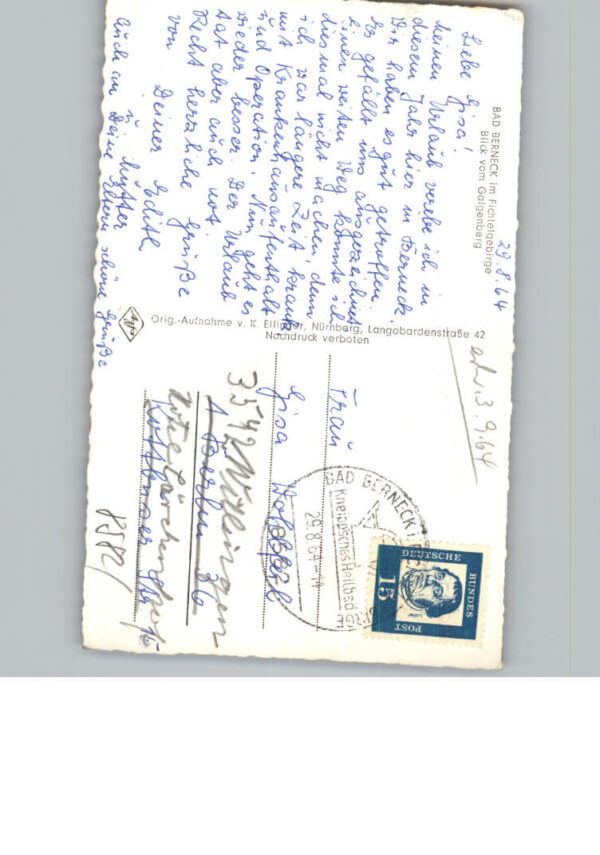 BAD BERNECK im Fichtelgebirge
Blick vom Galgenberg
29.8.64
Liebe Gisa!
Meinen Urlaub verlebe ich in
diesem Jahr hier in Berneck.
Wir haben es gut getroffen.
Es gefällt uns ausgezeichnet
Einen weiten Weg konnte ich
diesmal nicht machen, denn
ich war längere Zeit krank
mit Krankenhausaufenthalt
und Operation. Nun geht es
wieder besser. Der Urlaub
tat aber auch not.
Recht herzliche Grüße
von Deiner Edith
u. Mutter
Auch an Deine Eltern schöne Grüße
Agfa
Orig.-Aufnahme v. K. Ellinger, Nürnberg, Langobardenstraße 42
Nachdruck verboten
3.9.64
Frau
Gisa
1 Berlin 36
3542 Willingen
8582/
BAD BERNECK i.
Kneippsches Heilbad
29.8.64-14
DEUTSCHE
BUNDES
POST
15